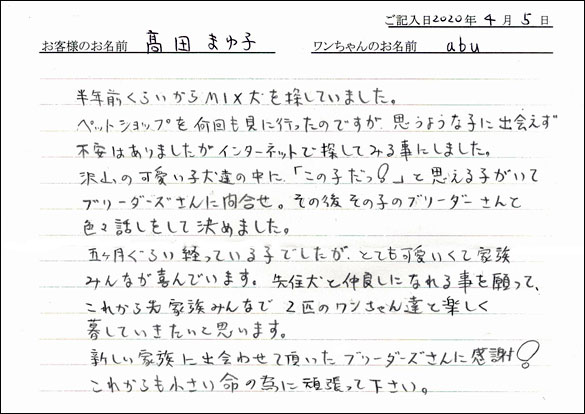 ご記入日2020年 4 月 5 日
お客様のお名前 髙田 まゆ子 ワンちゃんのお名前 abu
半年前くらいからMIX犬を探していました。
ペットショップを何回も見に行ったのですが、思うような子に出会えず
不安はありましたがインターネットで探してみる事にしました。
沢山の可愛い子犬達の中に、「この子だっ!」と思える子がいて
ブリーダーズさんに問合せ。その後その子のブリーダーさんと
色々話しをして決めました。
五ヶ月ぐらい経っている子でしたが、とても可愛いくて家族
みんなが喜んでいます。先住犬と仲良しになれる事を願って、
これから先家族みんなで 2匹のワンちゃん達と楽しく
暮していきたいと思います。
新しい家族に出会わせて頂いたブリーダーズさんに感謝!
これからも小さい命の為に頑張って下さい。